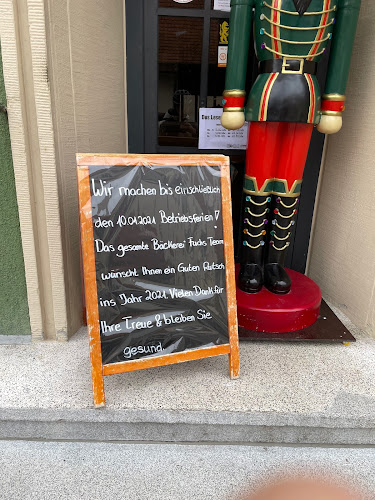 Wir machen bis einschließlich
den 10.01.2021 Betriebsferien!
Das gesamte Bäckerei Fuchs Team
wünscht Ihnen ein Guten Rutsch
ins Jahr 2021. Vielen Dank für
Ihre Treue & bleiben Sie
gesund.